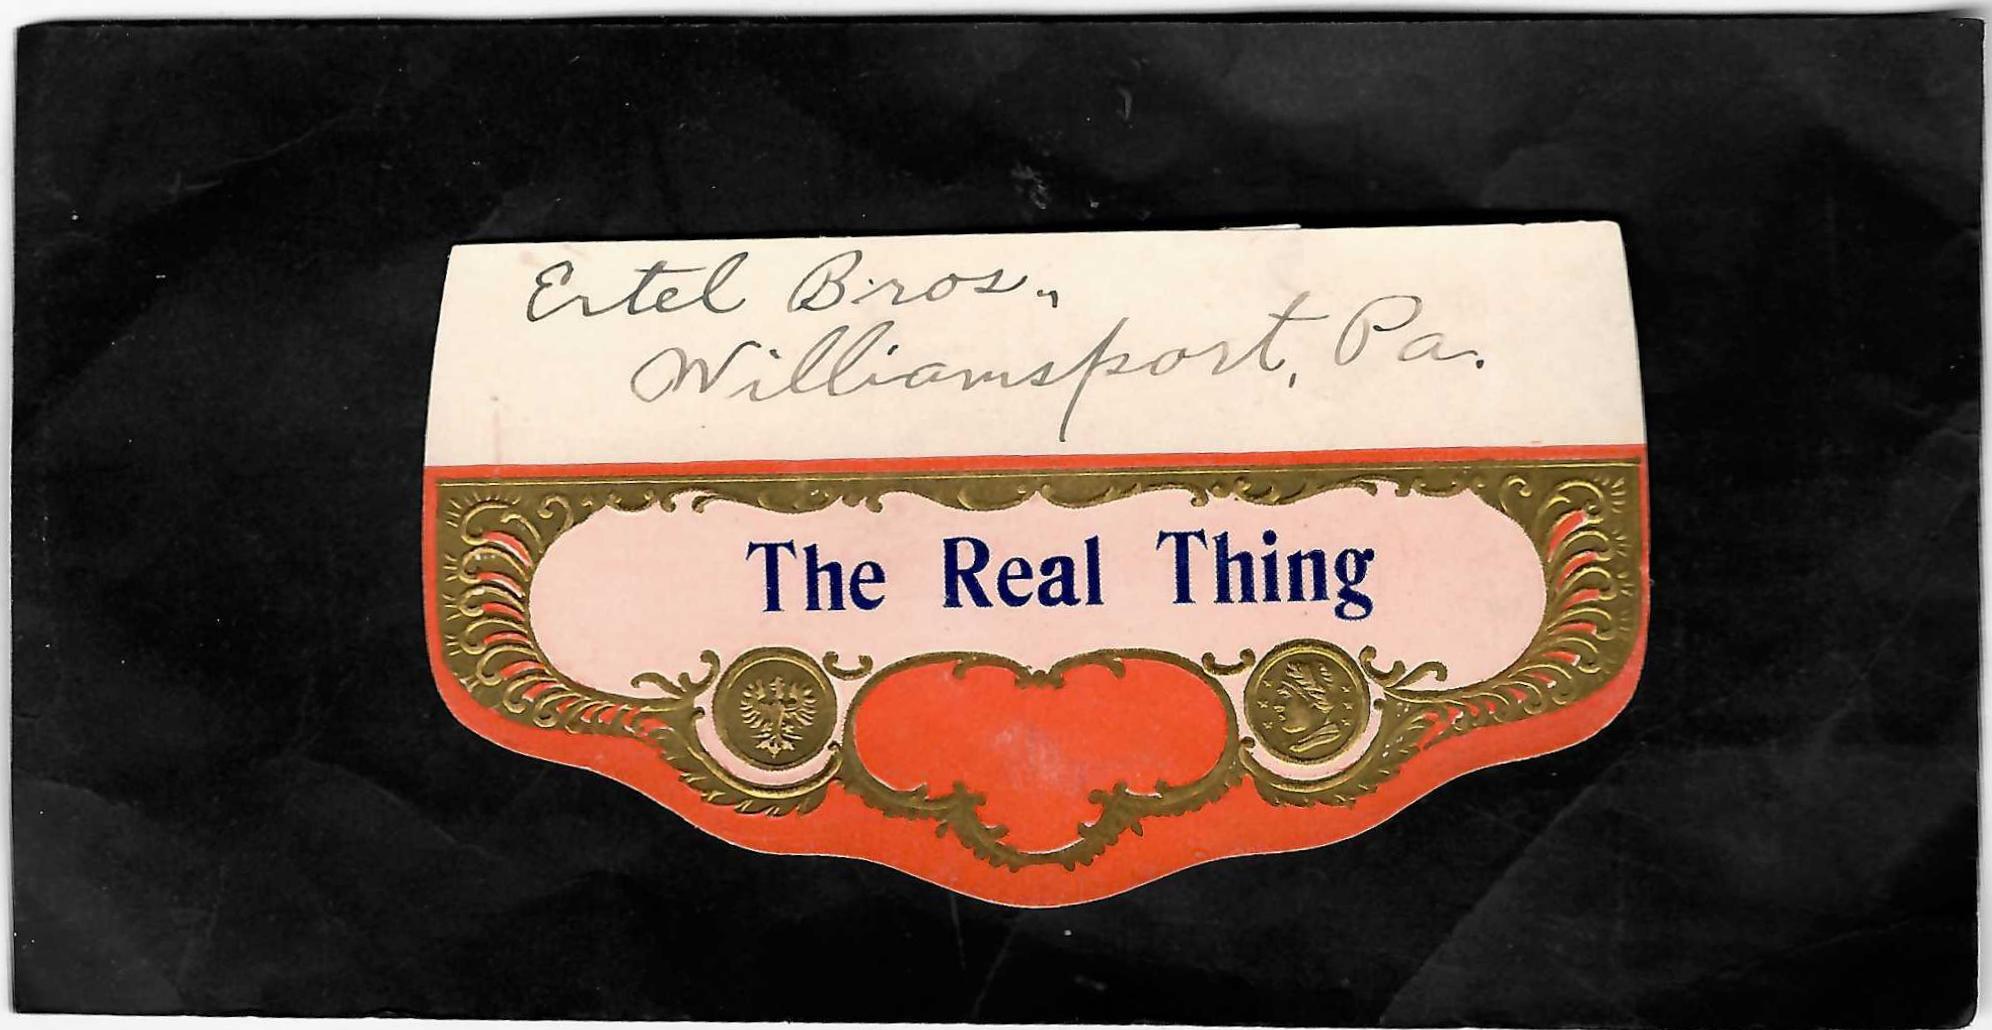 Ertel Bros.,
Williamsport, Pa.
The Real Thing